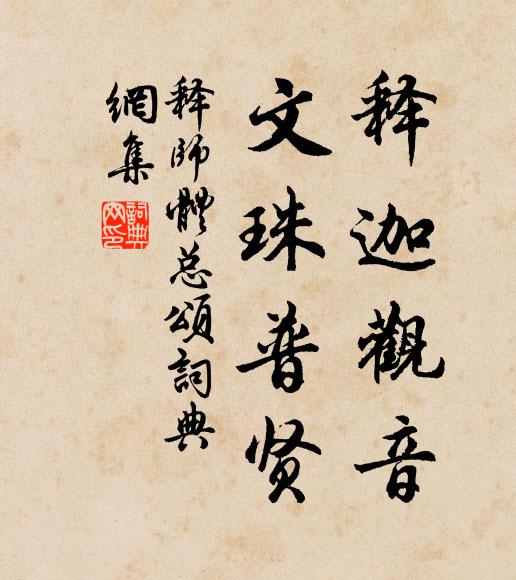 释迦觀音
文珠普贤
释師體总頌詞典
網集
詞典
网印